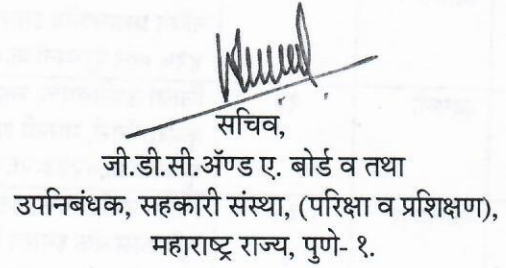 सचिव,
जी.डी.सी.ॲण्ड ए. बोर्ड व तथा
उपनिबंधक, सहकारी संस्था, (परिक्षा व प्रशिक्षण),
महाराष्ट्र राज्य, पुणे- १.